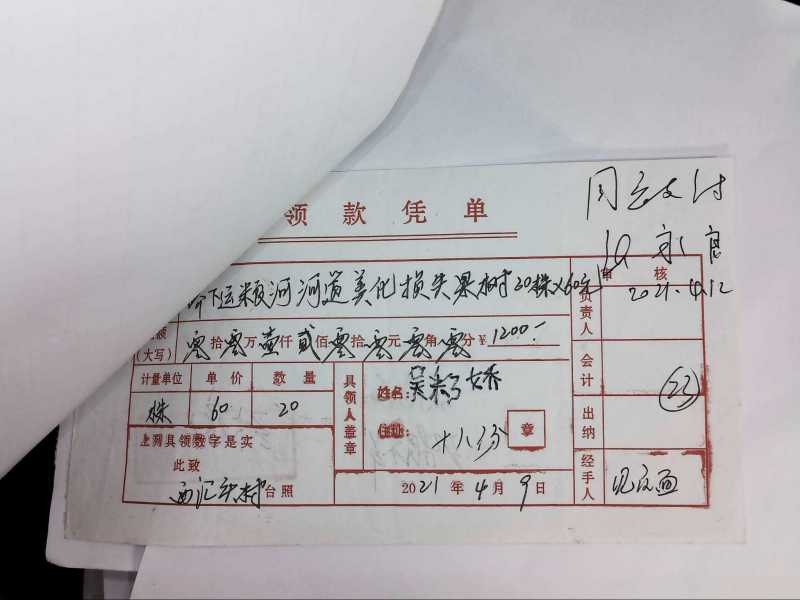 领款凭单
同意支付
2021.4.12
下运粮河河道美化损失果树20株×60元
审核
额(大写) 零拾零万壹仟贰佰零拾零元零角零分 ¥1200.-
负责人
计量单位 单价 数量
株 60 20
具领人盖章
姓名:
住址: 十八份 章
会计
(23)
出纳
上列具领数字是实
此致
台照
2021年4月9日
经手人